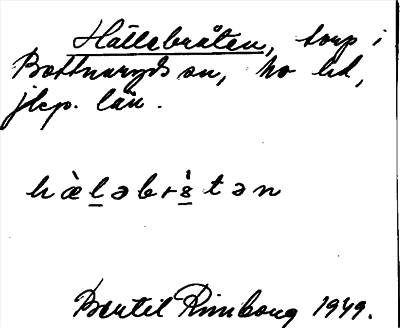 Hällebråten, torp i
Bottnaryds sn, Mo hd,
jkp. län.
Bertil Rimborg 1949.